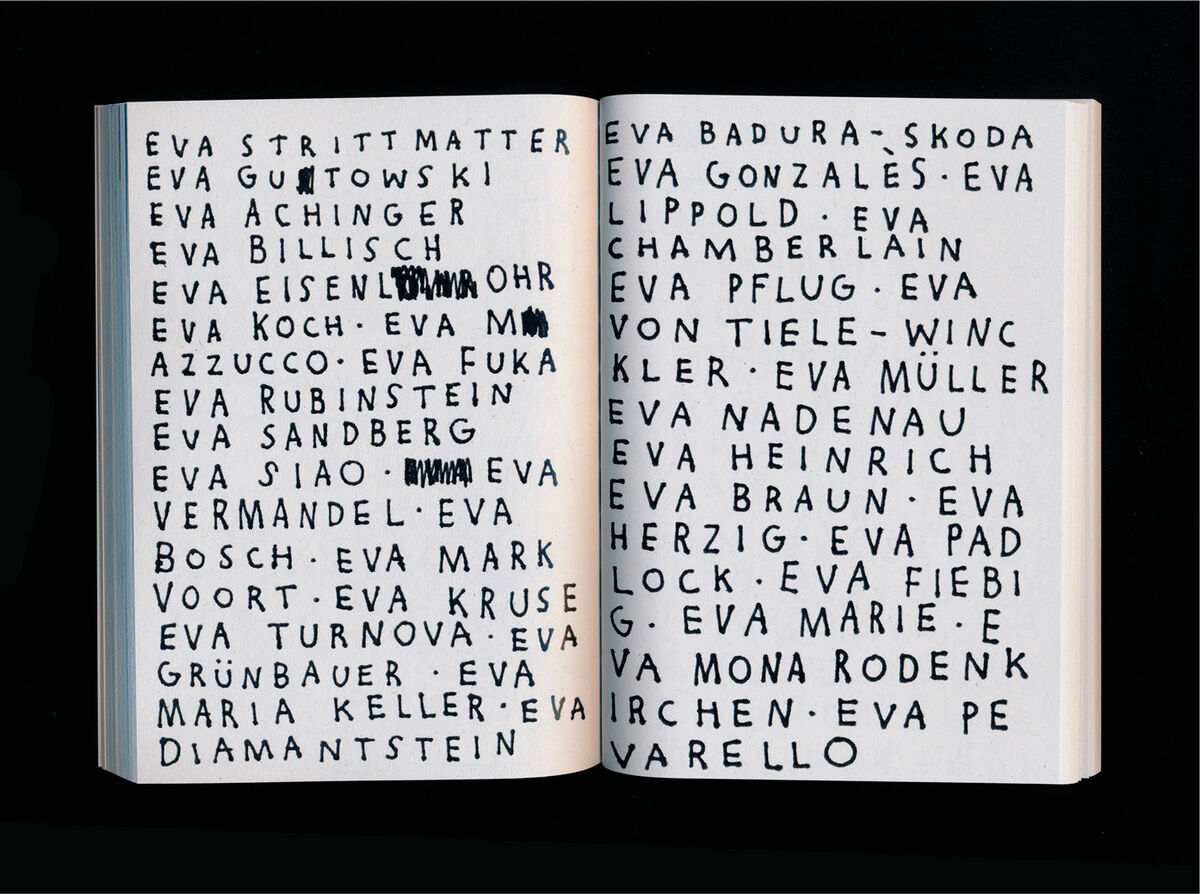 EVA STRITTMATTER
EVA GUTOWSKI
EVA ACHINGER
EVA BILLISCH
EVA EISENLOHR
EVA KOCH · EVA M
AZZUCCO · EVA FUKA
EVA RUBINSTEIN
EVA SANDBERG
EVA SIAO · EVA
VERMANDEL · EVA
BOSCH · EVA MARK
VOORT · EVA KRUSE
EVA TURNOVA · EVA
GRÜNBAUER · EVA
MARIA KELLER · EVA
DIAMANTSTEIN
EVA BADURA-SKODA
EVA GONZALÈS · EVA
LIPPOLD · EVA
CHAMBERLAIN
EVA PFLUG · EVA
VON TIELE-WINC
KLER · EVA MÜLLER
EVA NADENAU
EVA HEINRICH
EVA BRAUN · EVA
HERZIG · EVA PAD
LOCK · EVA FIEBI
G · EVA MARIE · E
VA MONA RODENK
IRCHEN · EVA PE
VARELLO